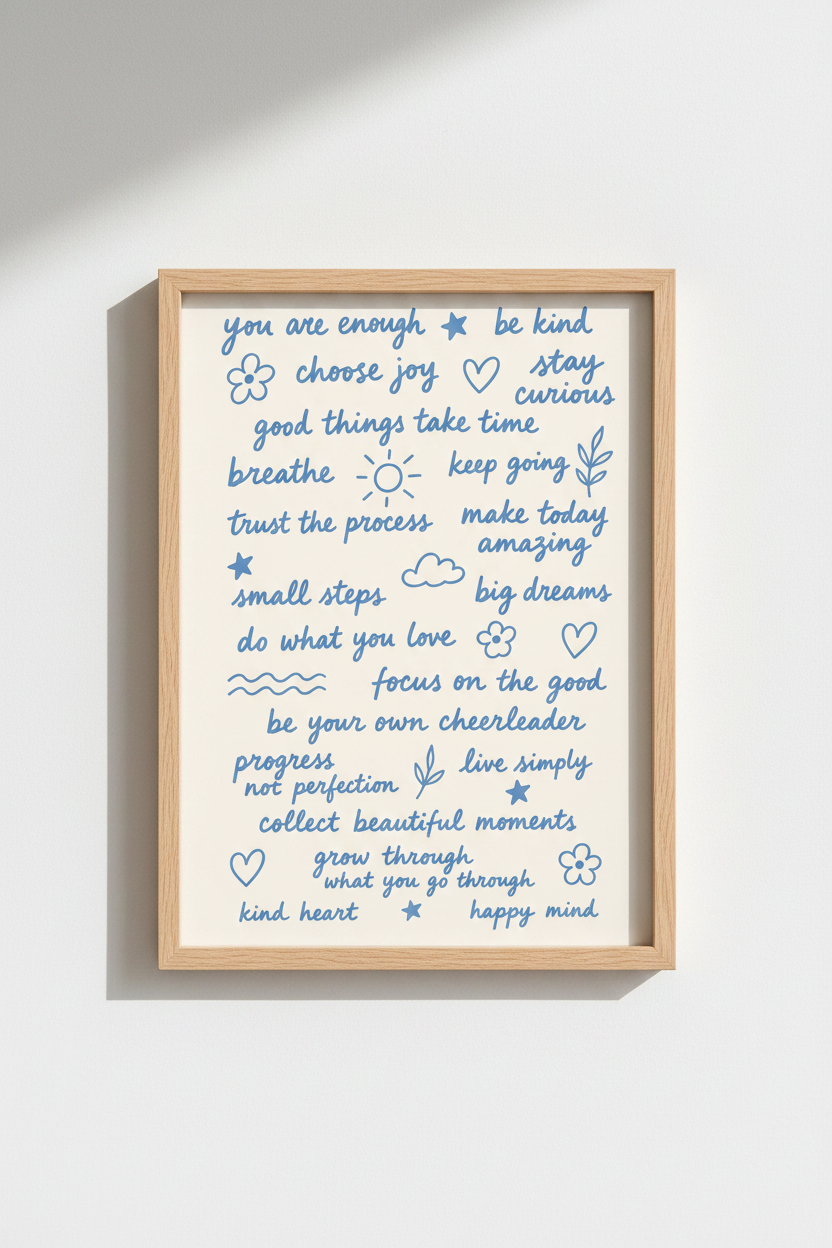 you are enough be kind
choose joy stay
curious
good things take time
breathe keep going
trust the process make today
amazing
small steps big dreams
do what you love
focus on the good
be your own cheerleader
progress live simply
not perfection
collect beautiful moments
grow through
what you go through
kind heart happy mind